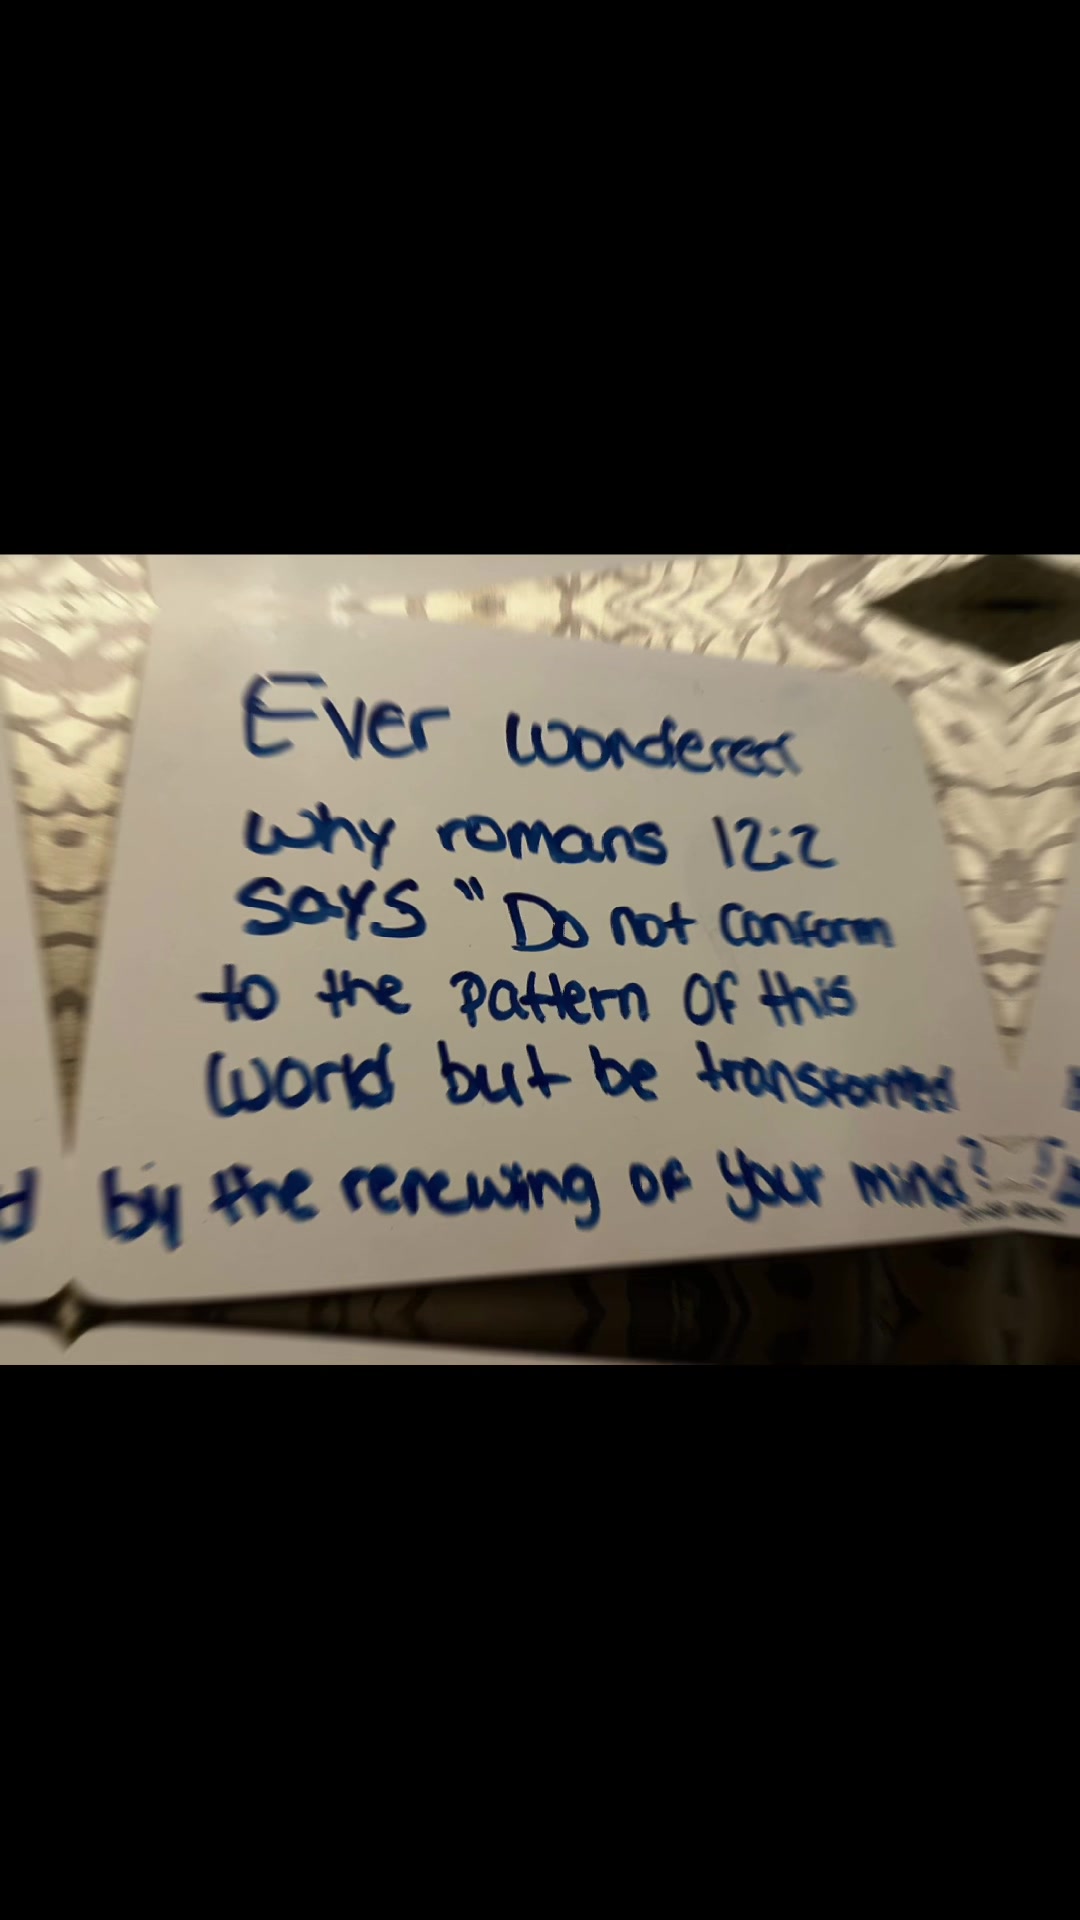 Ever wondered
why romans 12:2
says "Do not conform
to the pattern of this
world but be transformed
by the renewing of your mind?